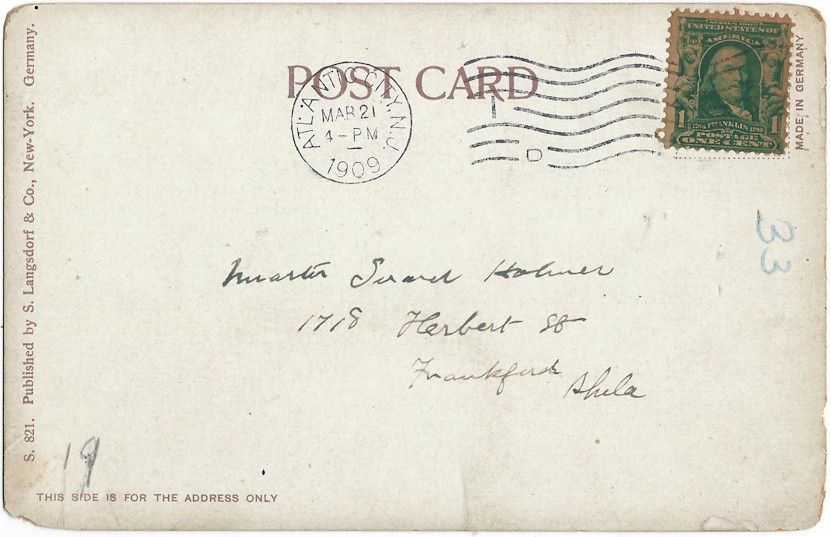 POST CARD
ATLANTIC CITY, N.J.
MAR 21
4-PM
1909
1
D
SERIES 1902
UNITED STATES OF
AMERICA
1 1
FRANKLIN
POSTAGE
ONE CENT
MADE IN GERMANY
33
Master Holmer
1718 Herbert St
Frankford Phila
S. 821. Published by S. Langsdorf & Co., New-York. Germany.
19
THIS SIDE IS FOR THE ADDRESS ONLY